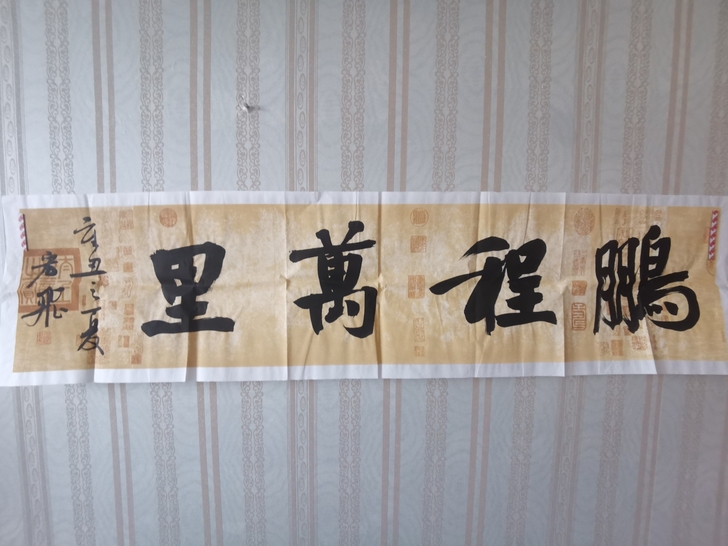 鵬程萬里
辛丑之夏
宏飛